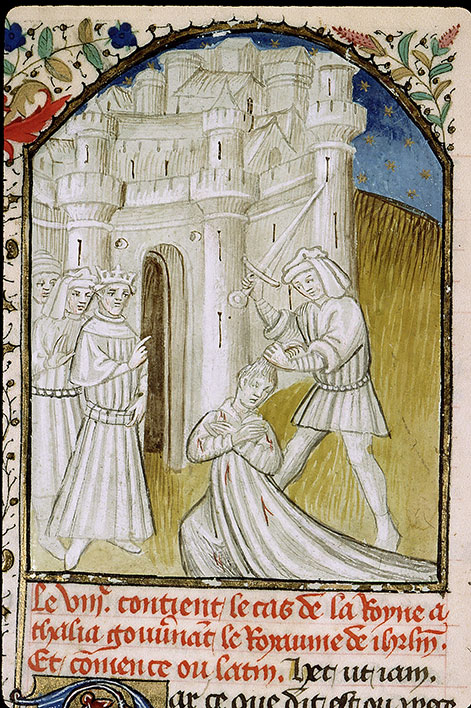 Le VIIIe. contient le cas de la Royne a
thalia gouuernant le Royaume de ihrlm.
Et comence ou latin. Hec ut iam.
ar ce que dit est ou